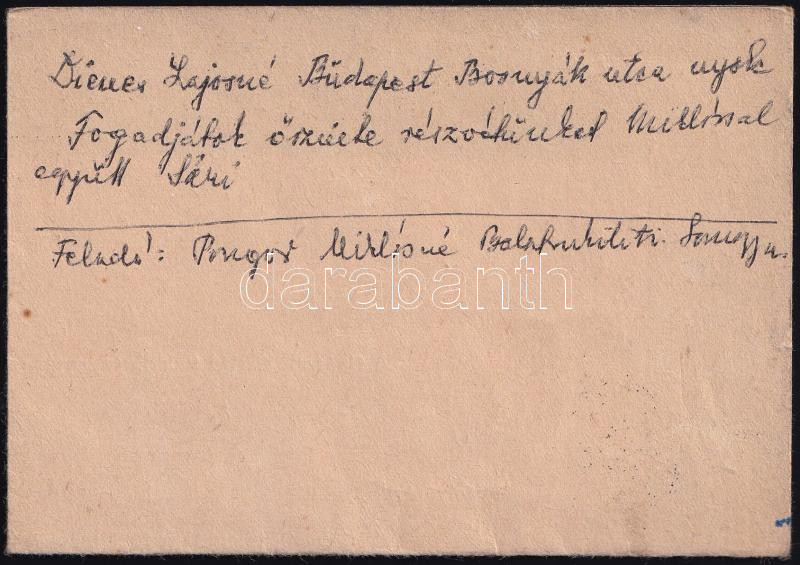 Dienes Lajosné Büdapest Bosnyák utca nyolc
Fogadjátok őszinte részvétünket Miklóssal
együtt Sári
Feladó: Pongor Miklósné Somogy u.
darabanth